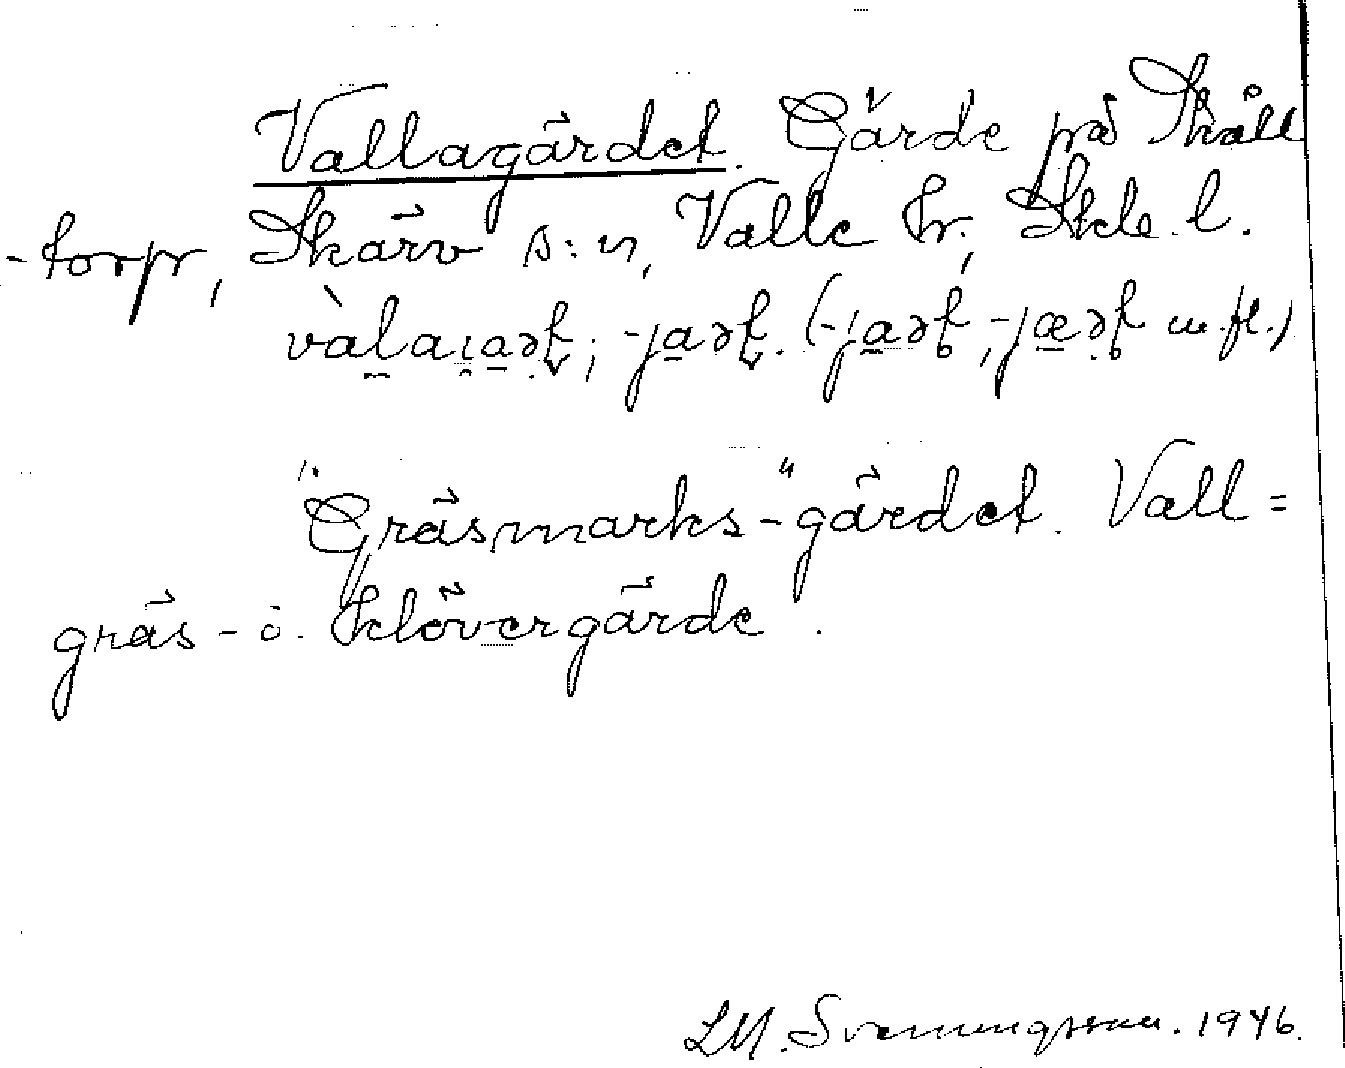 Vallagärdet. Gärde på Skåll
-torp, Skärv s:n, Valle hr., Skbl. l.
"Gräsmarks-"gärdet. Vall=
gräs- o. klövergärde.
LM. Svenungsson. 1946.